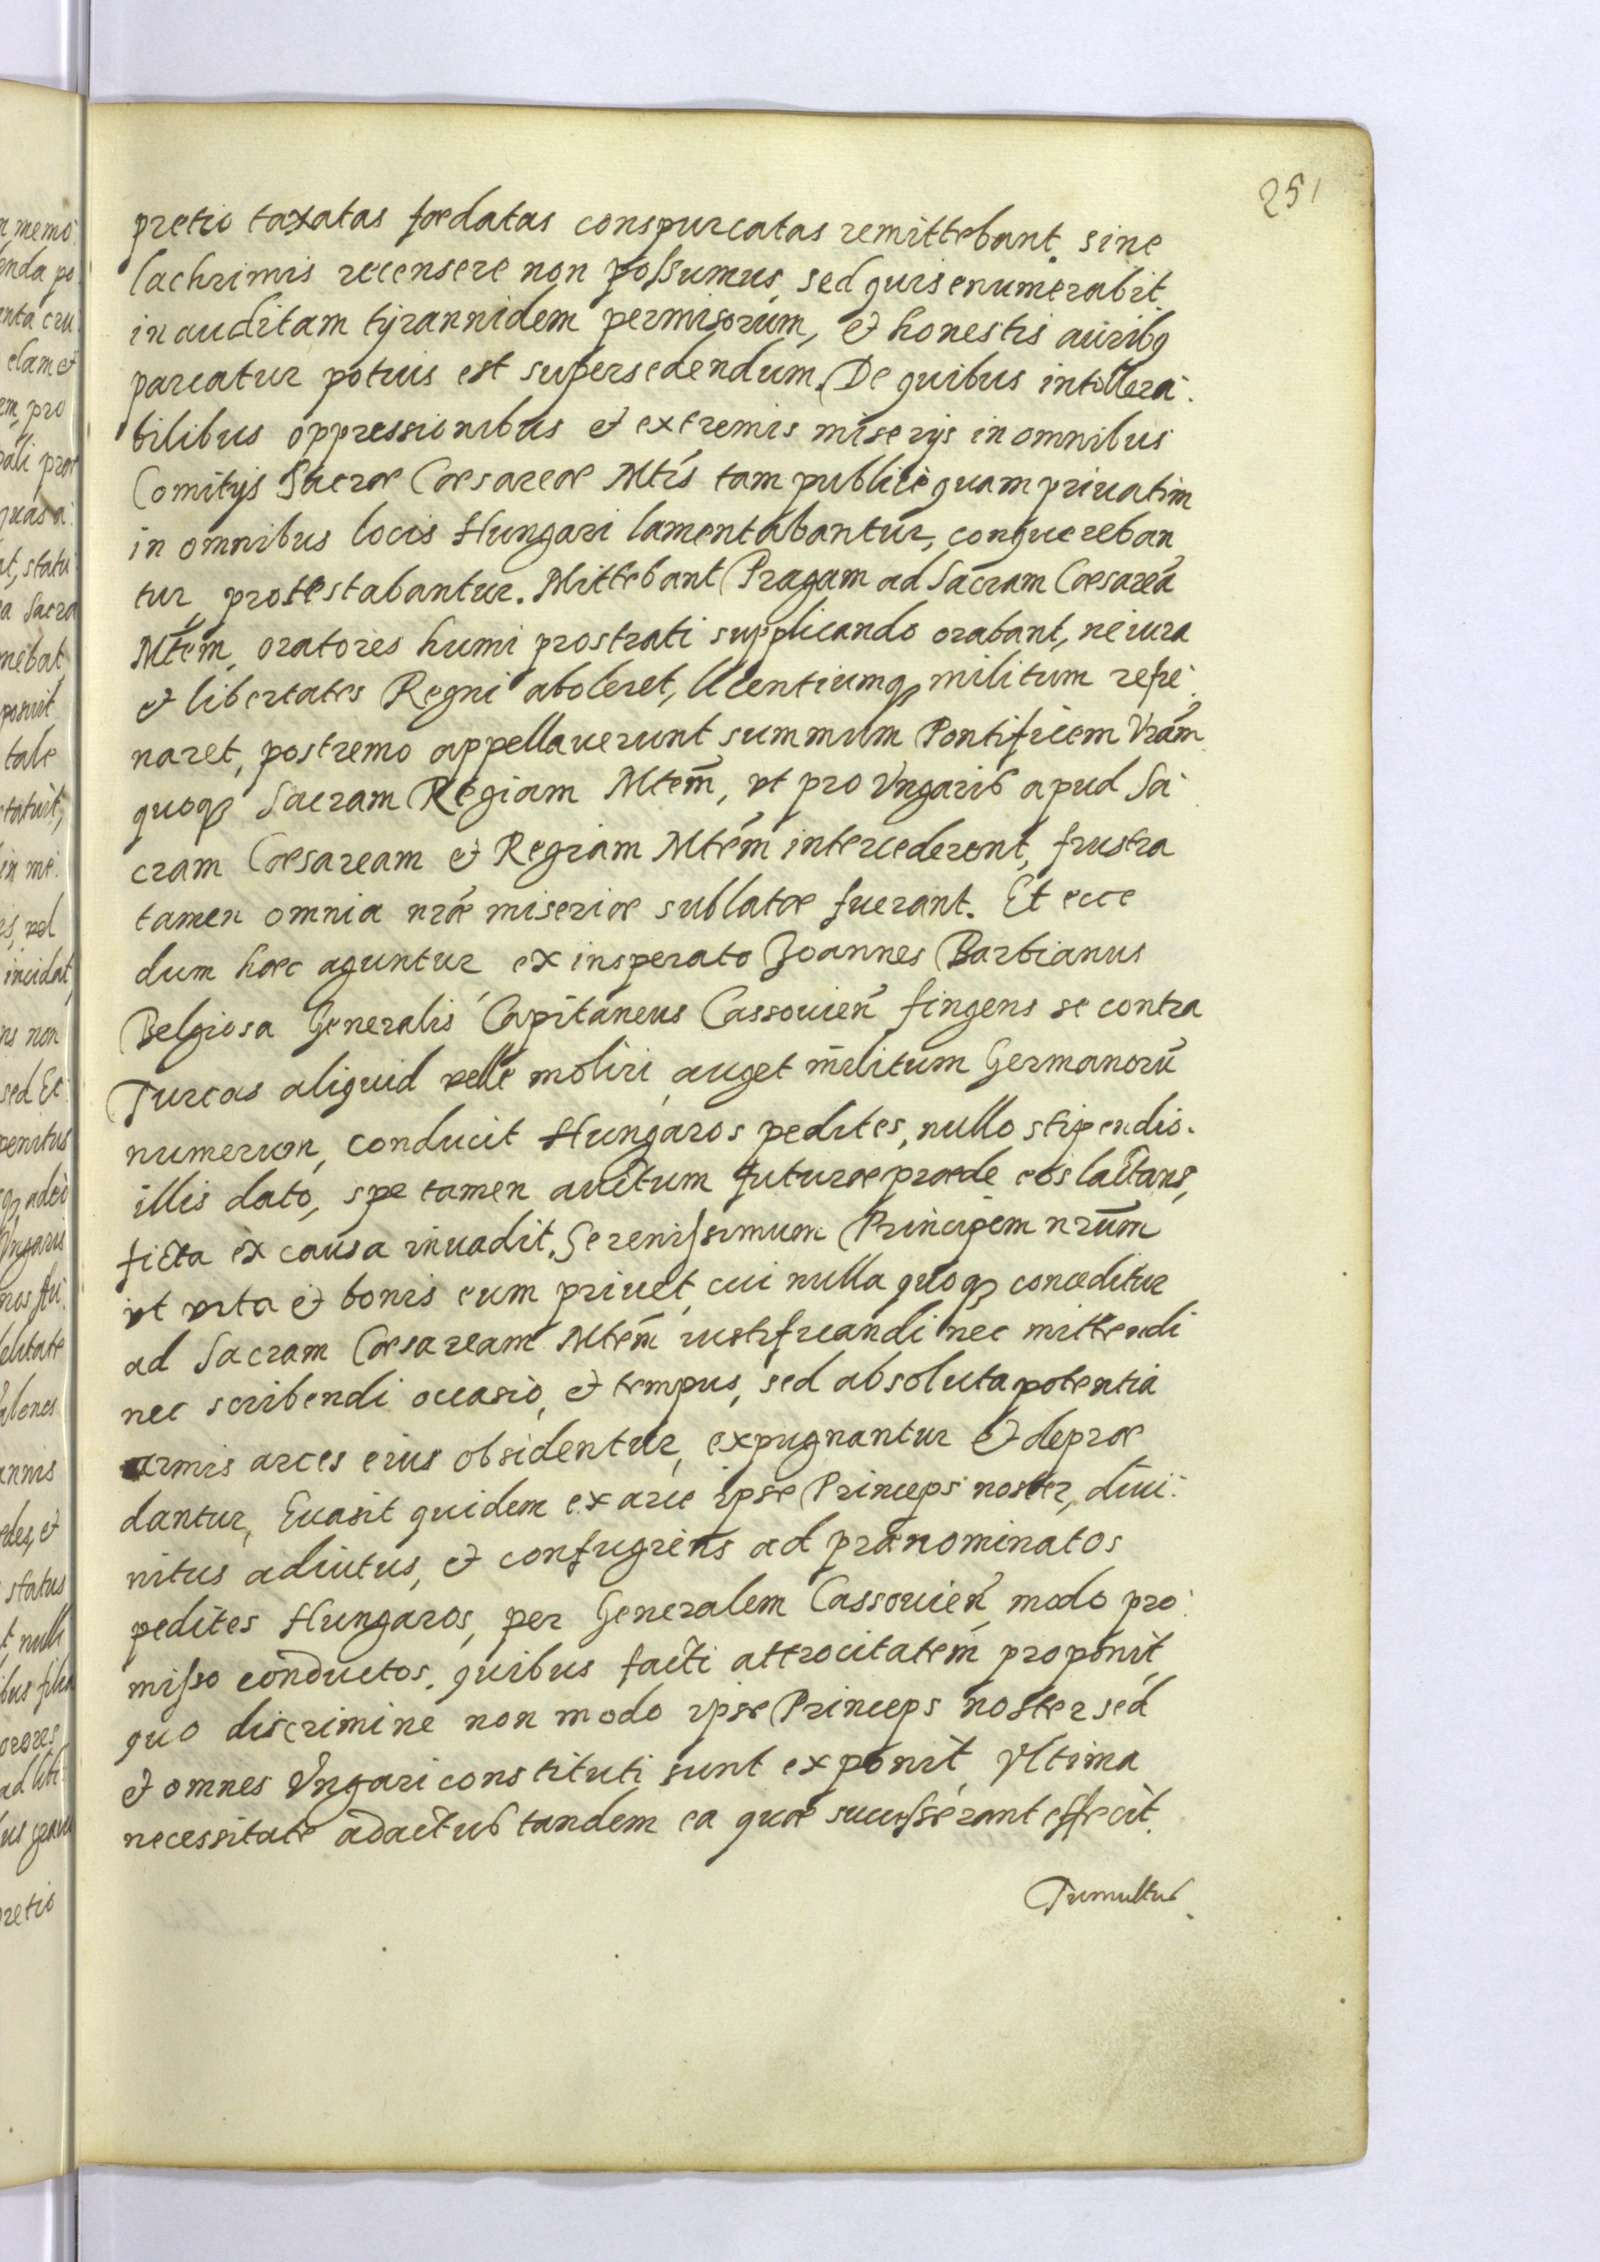 251
pretio taxatas fœdatas conspurcatas remittebant. sine
lachrimis recensere non possumus, sed quis enumerabit
inauditam tyrannidem permisorum, et honestis auribq
parcatur potius est supersedendum. De quibus intollera:
bilibus oppressionibus et extremis miserijs in omnibus
Comitijs Sacræ Cæsareæ Mtis tam publicè quam priuatim
in omnibus locis Hungari lamentabantur, conquereban
tur, protestabantur. Mittebant Pragam ad Sacram Cæsareã
Mtem, oratores humi prostrati supplicando orabant, ne iura
et libertates Regni aboleret, licentiumq militum refre:
naret, postremo appellauerunt summum Pontificem Vrãm
quoq Sacram Regiam Mtem, vt pro Vngaris apud Sa:
cram Cæsaream et Regiam Mtem intercederent, frustra
tamen omnia nræ miseriæ sublatæ fuerant. Et ecce
dum hæc aguntur, ex insperato Joannes Barbianus
Belgiosa Generalis Capitaneus Cassouieñ fingens se contra
Turcas aliquid velle moliri, auget militum Germanorũ
numerum, conducit Hungaros pedites, nullo stipendio.
illis dato, spe tamen auitum futuræ præde eos lactans,
ficta ex causa inuadit. Serenissimum Principem nrũm
vt vita et bonis eum priuet, cui nulla quoq conceditur
ad Sacram Cæsaream Mtem iustificandi nec mittendi
nec scribendi occasio, et tempus, sed absoluta potentia
armis arces eius obsidentur, expugnantur et depræ
dantur, Euasit quidem ex arce ipse Princeps noster, diui:
nitus adiutus, et confugiens ad prænominatos
pedites Hungaros, per Generalem Cassouieñ modo pro:
misso conductos. quibus facti attrocitatem proponit,
quo discrimine non modo ipse Princeps noster sed
et omnes Vngari constituti sunt exponit, Vltima
necessitate adactus tandem ea quæ successerant effecit.
Tumultus